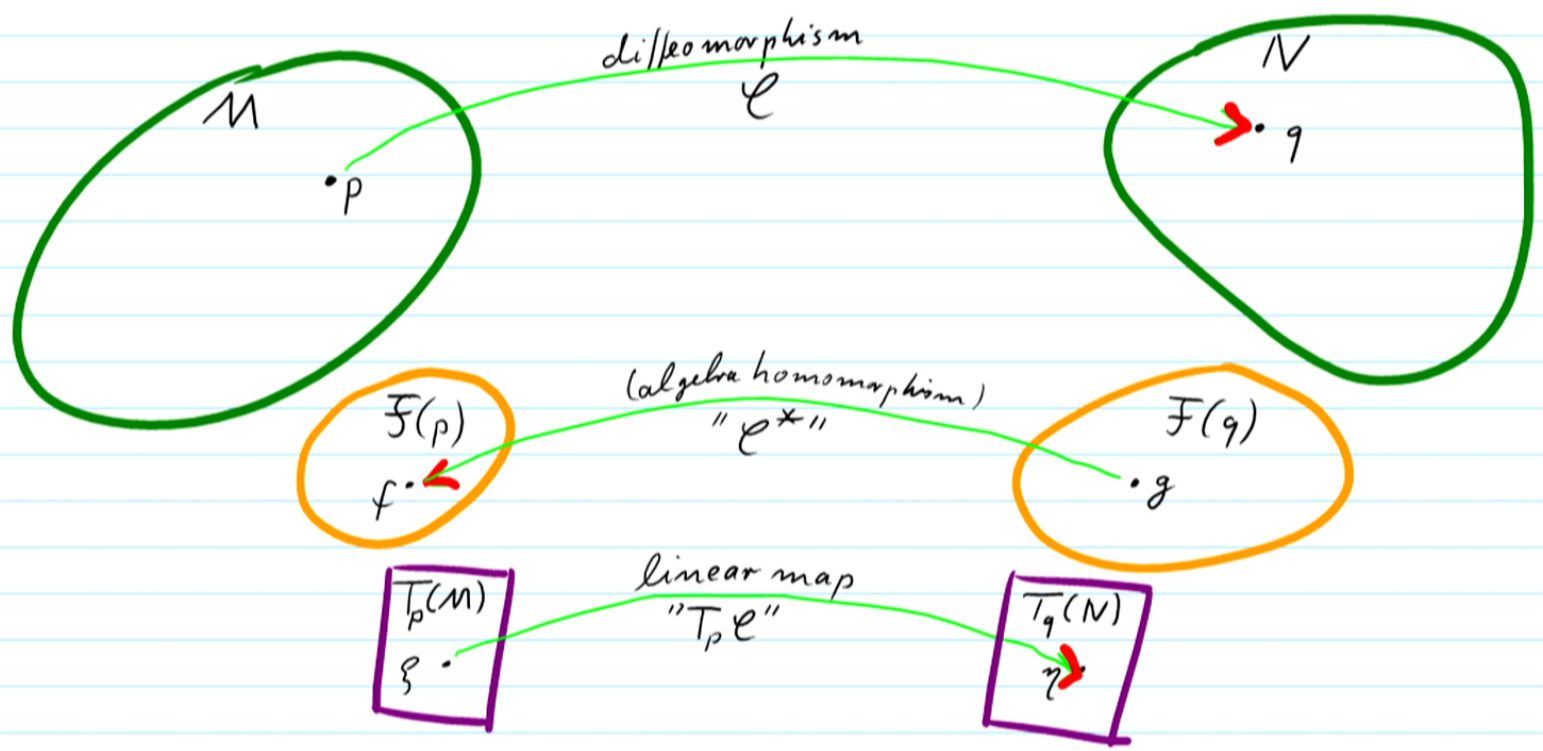 diffeomorphism
M φ N
p q
(algebra homomorphism)
F(p) "φ*" F(q)
f g
linear map
T_p(M) "T_pφ" T_q(N)
ξ η